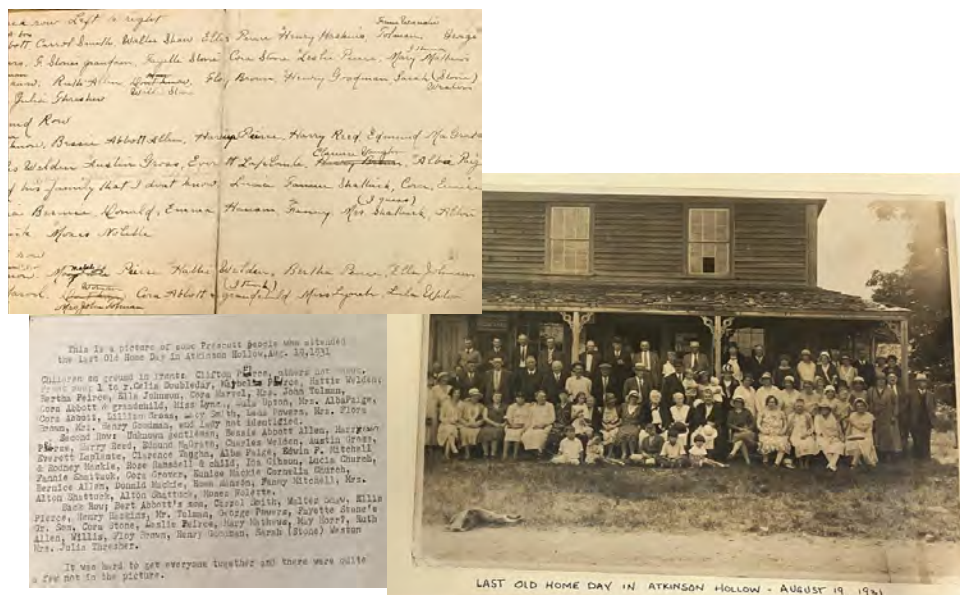 row Left to right
Carrol Smith, Walter Shaw, Ellis Pierce Henry Haskins, Tolman George
Stones grandson, Fayette Stone Cora Stone Leslie Peirce, Mary Mathews
Ruth Allen Floy Brown, Henry Goodman Sarah (Stone)
Willis Stone
Julia Thresher
Row
Bessie Abbott Allen, Pierce, Harry Reed, Edmund McGrath
Welden Austin Gross, Everett LaPlante, Clarence Vaughn Alba Paige
his family that I dont know, Lucia Fannie Shattuck, Cora, Eunice
(I guess)
Bernice Donald, Emma Hanson, Fanny, Mrs. Shattuck, Alton
Moses
Pierce Hattie Welden, Bertha Pierce, Ella Johnson
(I think)
Cora Abbott & grandchild Miss Lynch, Lula Upton
Mrs John Tolman
This is a picture of some Prescott people who attended
the Last Old Home Day in Atkinson Hollow, Aug. 19, 1931
Children on ground in front: Clifton Pierce, others not known.
Front row: l to r. Celia Doubleday, Maybelle Peirce, Hattie Welden;
Bertha Peirce, Ella Johnson, Cora Marvel, Mrs. John Tolman,
Cora Abbott & grandchild, Miss Lynch, Lula Upton, Mrs. Alba Paige,
Cora Abbott, Lillian Gross, Lucy Smith, Lena Powers, Mrs. Flora
Brown, Mrs. Henry Goodman, and lady not identified.
Second Row: Unknown gentleman, Bessie Abbott Allen, Harry
Pierce, Harry Reed, Edmund McGrath, Charles Welden, Austin Gross,
Everett LaPlante, Clarence Vaughn, Alba Paige, Edwin F. Mitchell
& Rodney Mackie, Rose Ramsdell & child, Ida Gibson, Lucia Church,
Fannie Shattuck, Cora Grover, Eunice Mackie Cornelia Church,
Bernice Allen, Donald Mackie, Emma Hanson, Fanny Mitchell, Mrs.
Alton Shattuck, Alton Shattuck, Moses
Back Row: Bert Abbott's son, Carrol Smith, Walter Shaw, Ellis
Pierce, Henry Haskins, Mr. Tolman, George Powers, Fayette Stone's
Gr. Son, Cora Stone, Leslie Peirce, Mary Mathews, May Ruth
Allen, Willis, Floy Brown, Henry Goodman, Sarah (Stone) Weston
Mrs. Julia Thresher.
It was hard to get everyone together and there were quite
a few not in the picture.
LAST OLD HOME DAY IN ATKINSON HOLLOW - AUGUST 19, 1931